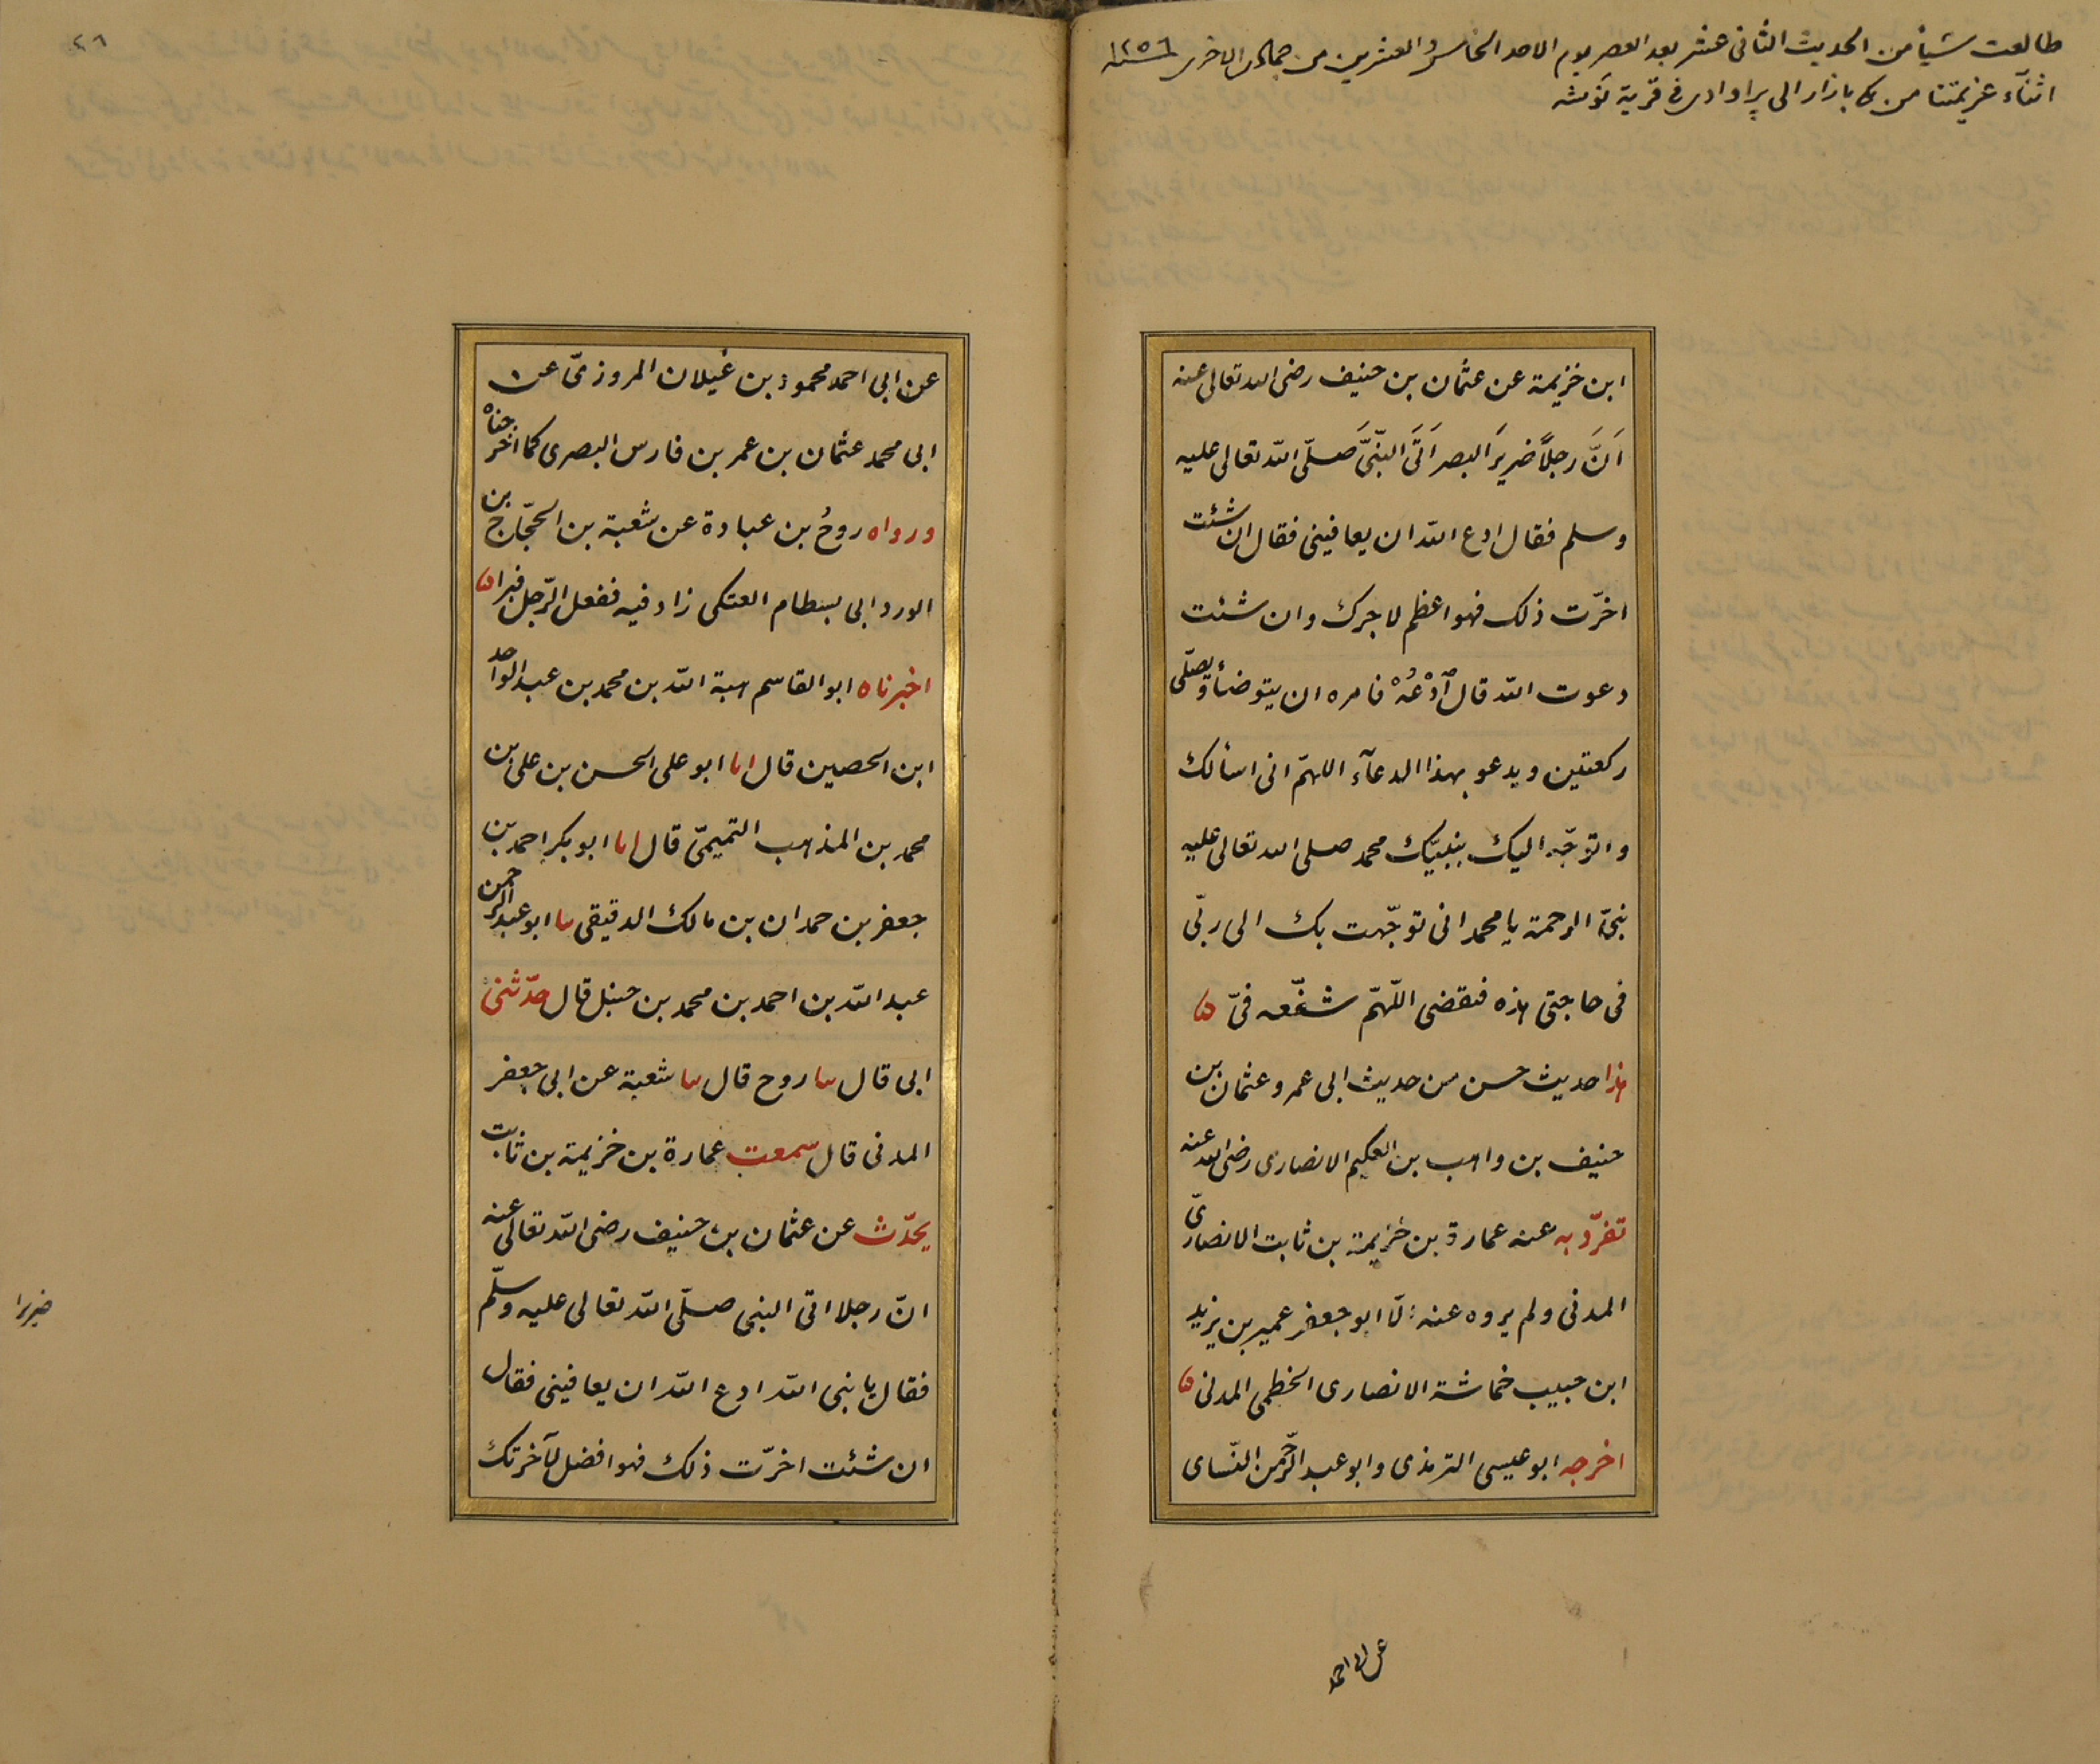 طالعت شيأ من الحديث الثانى عشر بعد العصر يوم الاحد الخامس والعشرين من جمادى الاخرى ١٢٥٦
اثنآء عزيمتنا من بازار الى پراوادى فى قرية
ابن خزيمة عن عثمان بن حنيف رضى الله تعالى عنه
اَنَّ رجلًا ضريرَ البصر اَتَى النّبىَّ صلّى الله تعالى عليه
وسلم فقال ادع الله ان يعافينى فقال ان شئت
اخّرت ذلك فهو اعظم لاجرك وان شئت
دعوت الله قال اُدْعُهْ فامره ان يتوضأ ويصلّى
ركعتين ويدعو بهذا الدعآء اللهمّ انى اسألك
واتوجّه اليك بنبيّك محمد صلى الله تعالى عليه
نبىّ الرحمة يا محمد انى توجّهت بك الى ربّى
فى حاجتى هذه فتقضى اللّهمّ شفّعه فىّ ه
هذا حديث حسن من حديث ابى عمرو عثمان بن
حنيف بن واهب بن العكيم الانصارى رضى الله عنه
تفرّد به عنه عمارة بن خزيمة بن ثابت الانصارىّ
المدنى ولم يروه عنه الّا ابو جعفر عمير بن يزيد
ابن حبيب خماشة الانصارى الخطمى المدنى ه
اخرجه ابو عيسى الترمذى وابو عبد الرّحمن النّساى
عن ابى احمد
٢٦
عن ابى احمد محمود بن غيلان المروزىّ عن
ابى محمد عثمان بن عمر بن فارس البصرى كما اخرجناه
ورواه روحُ بن عبادة عن شعبة بن الحجّاج بن
الورد ابى بسطام العتكى زاد فيه ففعل الرّجل فبرا ه
اخبرناه ابو القاسم هبة الله بن محمد بن عبد الواحد
ابن الحصين قال انا ابو على الحسن بن على بن
محمد بن المذهب التميمىّ قال انا ابو بكر احمد بن
جعفر بن حمدان بن مالك الدقيقى نا ابو عبد الرحمن
عبد الله بن احمد بن محمد بن حنبل قال حدّثنى
ابى قال نا روح قال نا شعبة عن ابى جعفر
المدنى قال سمعت عمارة بن خزيمة بن ثابت
يحدّث عن عثمان بن حنيف رضى الله تعالى عنه
انّ رجلا اتى النبى صلّى الله تعالى عليه وسلّم
ضريرا
فقال يا نبى الله ادع الله ان يعافينى فقال
ان شئت اخّرت ذلك فهو افضل لآخرتك